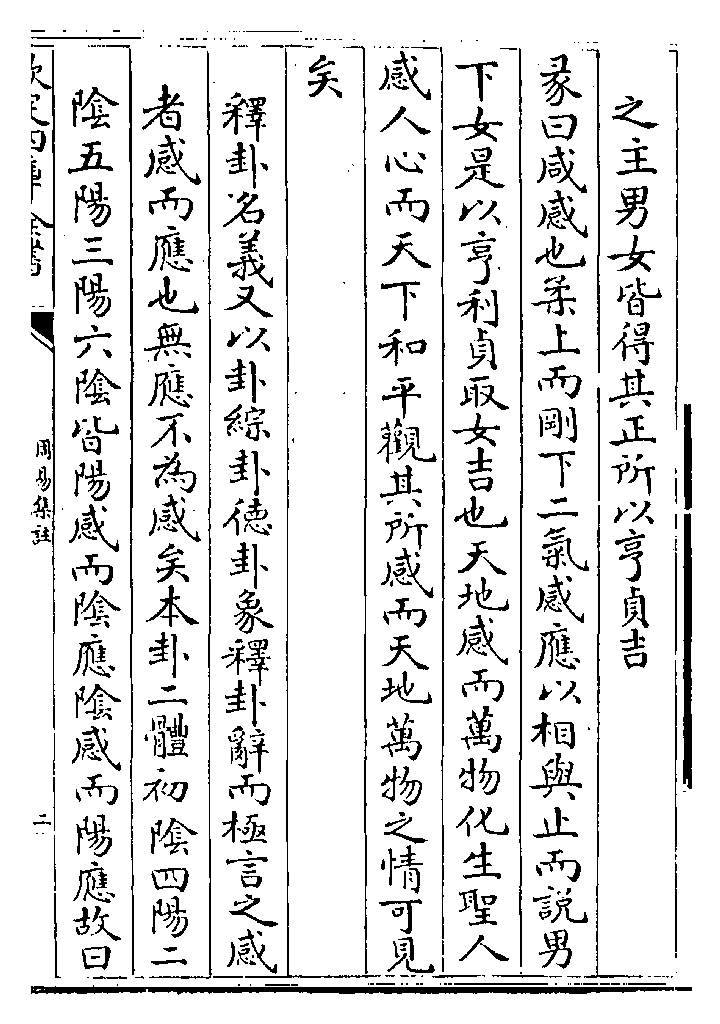 之主男女皆得其正所以亨貞吉
彖曰咸感也柔上而剛下二氣感應以相與止而說男
下女是以亨利貞取女吉也天地感而萬物化生聖人
感人心而天下和平觀其所感而天地萬物之情可見
矣
釋卦名義又以卦綜卦德卦象釋卦辭而極言之感
者感而應也無應不為感矣本卦二體初陰四陽二
陰五陽三陽六陰皆陽感而陰應陰感而陽應故曰
欽定四庫全書
周易集註
二